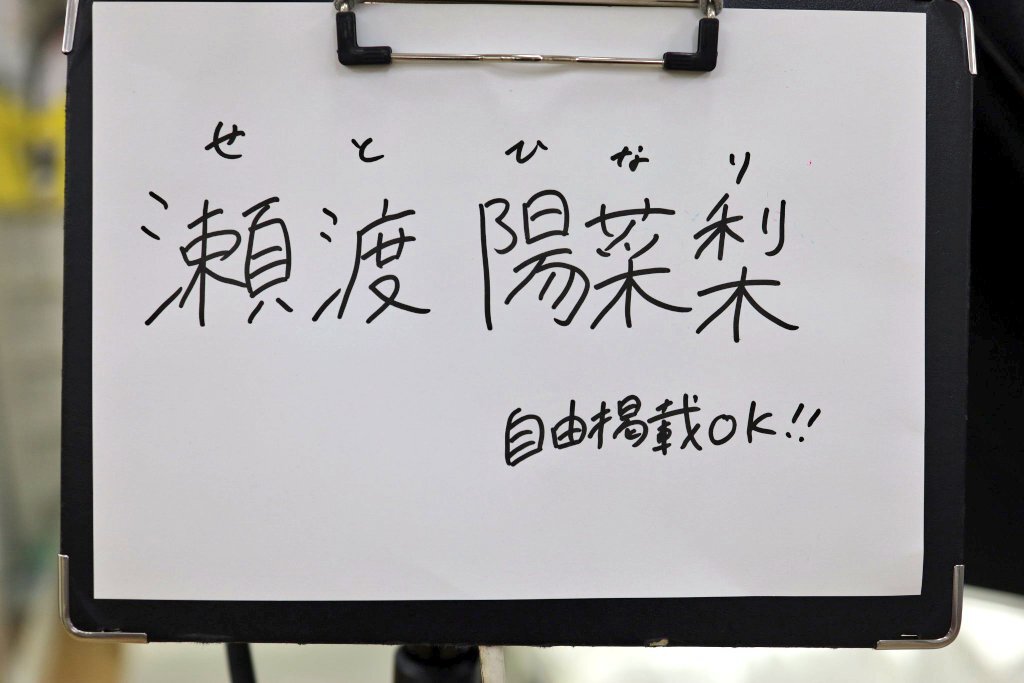 せとひなり
瀬渡 陽菜梨
自由掲載OK!!